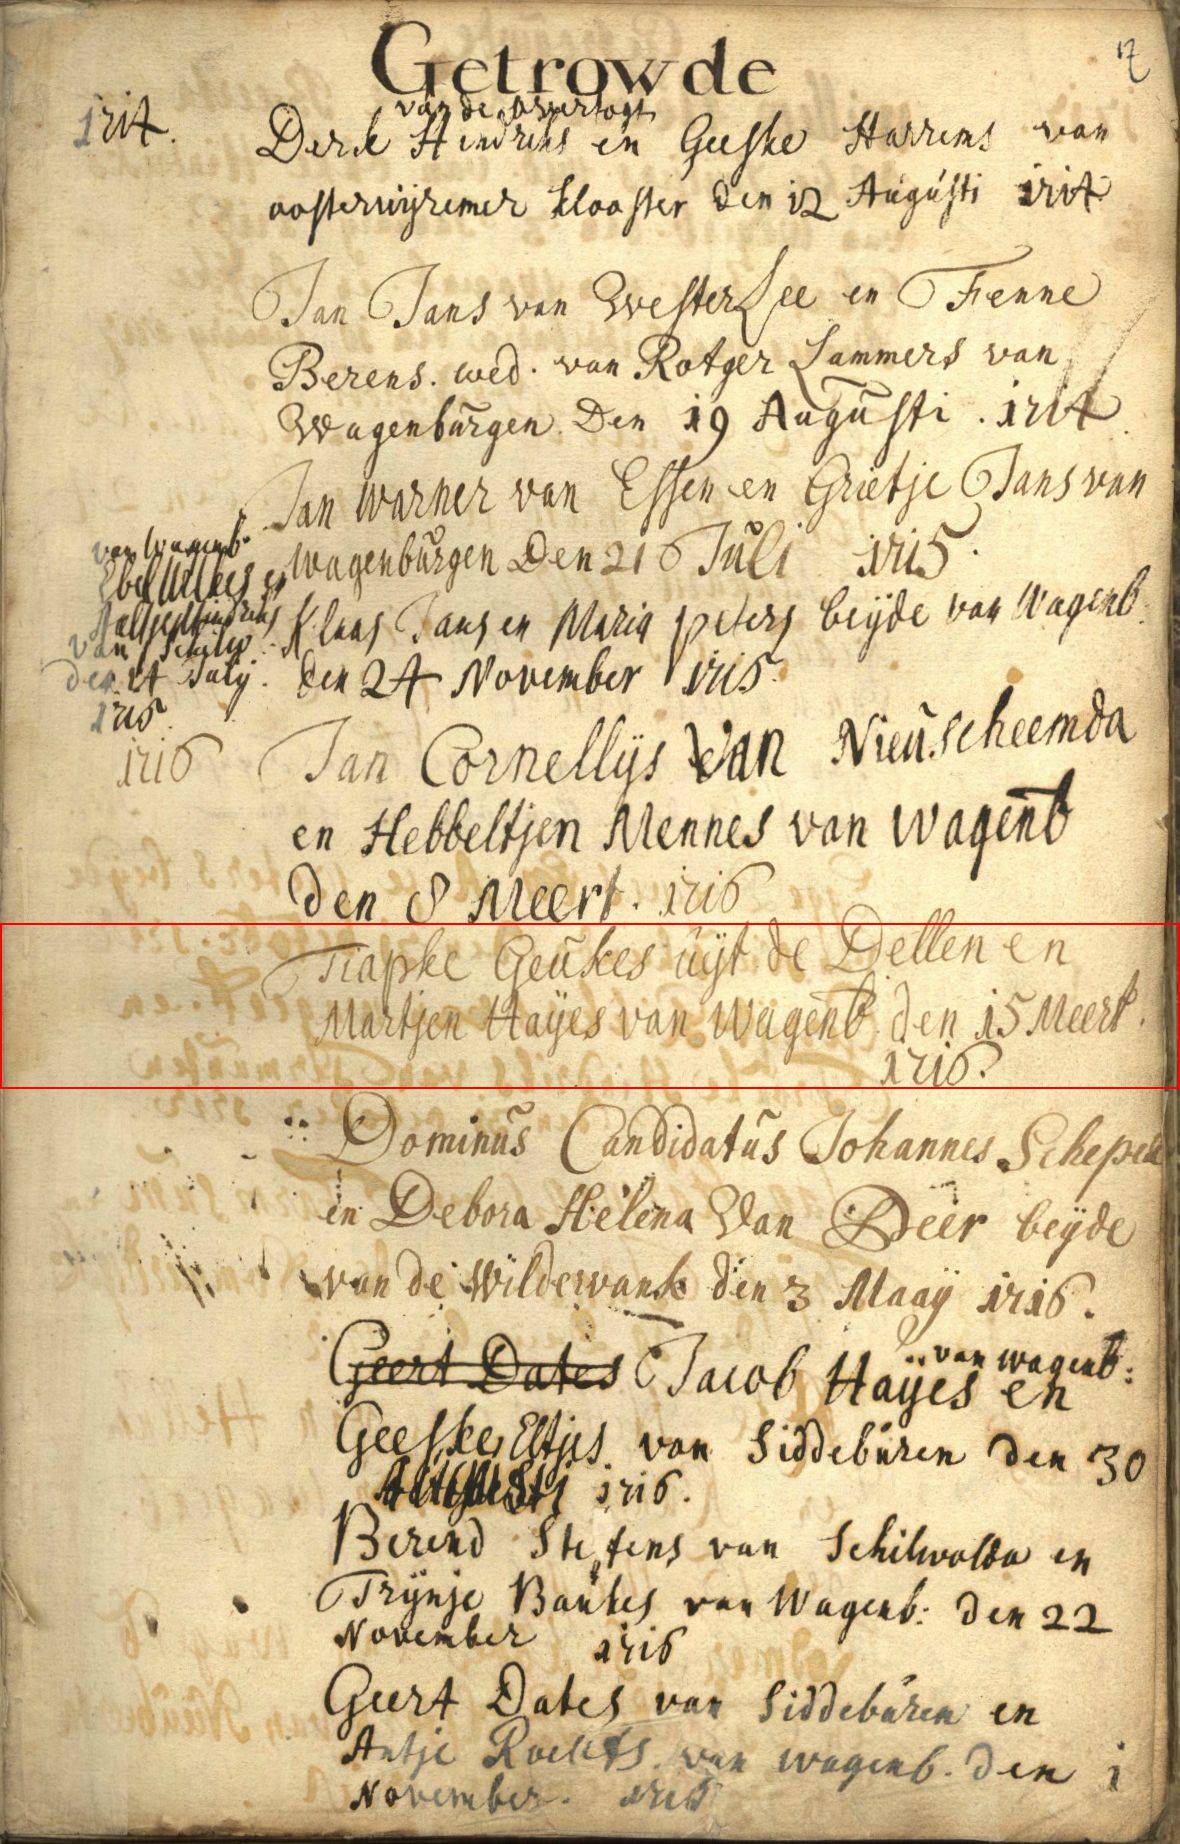 Getrowde
12
van de overtogt
1714. Derk Hindriks en Geeske Harrems van
oosterwijtemer klooster den 12 Augusti 1714
Jan Jans van Westerlee en Fenne
Berens. wed. van Rotger Lammers van
Wagenburgen Den 19 Augusti. 1714.
Jan warner van Essen en Grietje Jans van
wagenburgen Den 21 Juli 1715.
van Wagenb.
Ebel Wilkes en
Aaltje Hindriks
van Schilw.
den 14 July.
1715.
Klaas Jans en Maria peters beijde van Wagenb.
den 24 November 1715.
1716 Jan Cornellijs Van Nieuscheemda
en Hebbeltjen Mennes van wagenb
den 8 Meert. 1716
Tiapke Geukes uijt de Dellen en
Martjen Haijes van Wagenb. den 15 Meert.
1716.
Dominus Candidatus Johannes Schepel
en Debora Helena Van Beer beijde
van de Wildervank den 3 Maaij 1716.
van wagenb:
Geert Dates Jacob Haijes en
Geeske Eltjes van Siddeburen den 30
1716.
Berend Stefens van Schilwolda en
Trijnje Baukes van Wagenb: den 22
November 1716
Geert Dates van Siddeburen en
Antje Roelfs van wagenb. den 1
November. 1716